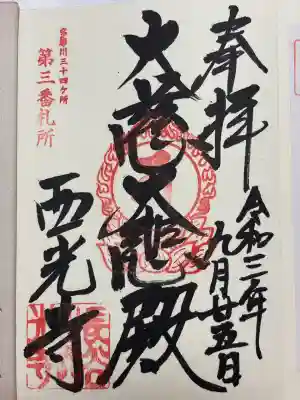 奉拝
令和三年九月廿五日
大慈大悲殿
多摩川三十四ヶ所
第三番札所
西光寺